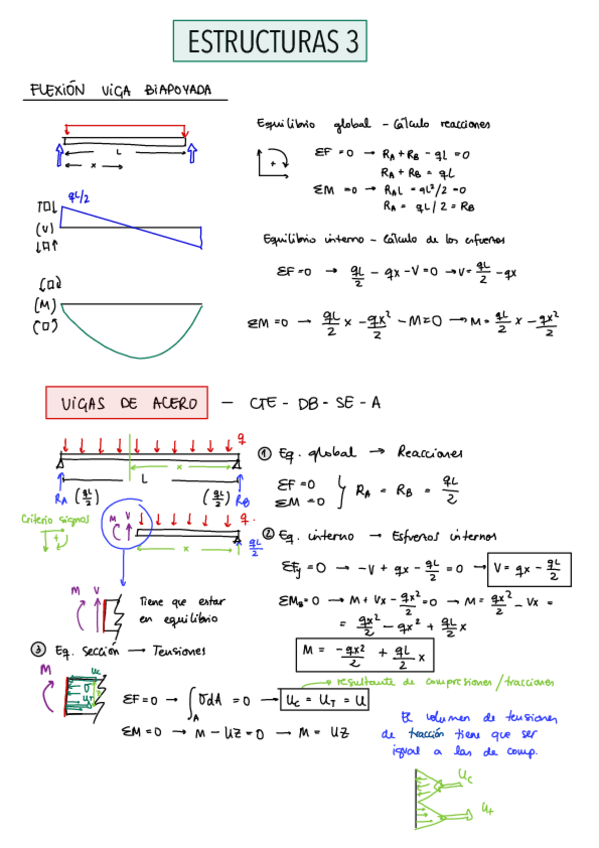 ESTRUCTURAS 3
FLEXIÓN VIGA BIAPOYADA
L
x
qL/2
(V)
(M)
Equilibrio global - Cálculo reacciones
ΣF =0 → RA + RB - qL =0
RA + RB = qL
ΣM =0 → RAL - qL²/2 =0
RA = qL/2 = RB
Equilibrio interno - Cálculo de los esfuerzos
ΣF=0 → qL/2 - qx - V =0 → V = qL/2 - qx
ΣM =0 → qL/2 x - qx²/2 - M=0 → M = qL/2 x - qx²/2
VIGAS DE ACERO - CTE - DB - SE - A
q
x
L
RA (qL/2) (qL/2) RB
① Eq. global → Reacciones
ΣF =0
ΣM =0 } RA = RB = qL/2
Criterio signos
M V q.
x
qL/2
② Eq. interno → Esfuerzos internos
ΣFy = 0 → -V + qx - qL/2 = 0 → V = qx - qL/2
ΣMB=0 → M + Vx - qx²/2 =0 → M = qx²/2 - Vx =
= qx²/2 - qx² + qL/2 x
M = -qx²/2 + qL/2 x
M V
Tiene que estar
en equilibrio
③ Eq. sección → Tensiones
M
Uc
σ
UT
ΣF=0 → ∫A σdA = 0 → Uc = UT = U
resultante de compresiones/tracciones
ΣM =0 → M - UZ =0 → M = UZ
El volumen de tensiones
de tracción tiene que ser
igual a las de comp.
Uc
Ut